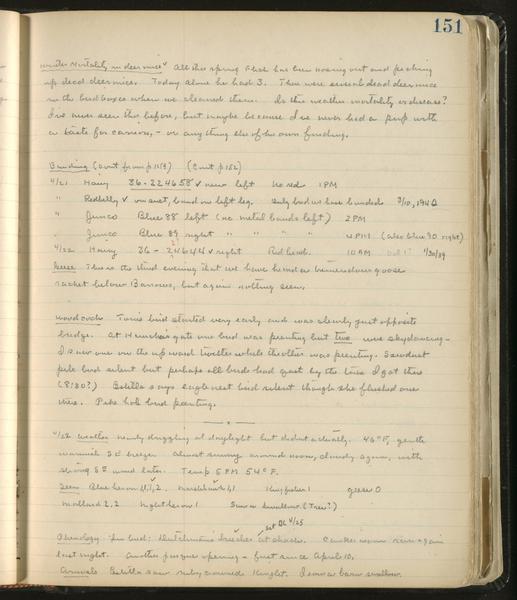 151
Winter Mortality in deermice ✓ All this spring Flick has been nosing out and picking
up dead deermice. Today alone he had 3. There were several dead deermice
in the bird boxes when we cleaned them. Is this weather mortality or disease?
I've never seen this before, but maybe because I've never had a pup with
a taste for carrion, - or anything else of his own finding.
Banding (cont from p 159) (Cont p 152)
4/21 Hairy 36-224658 ✓ new left no red 1PM
" Redbelly ✓ unsext, band on left leg. Only bird we have banded 3/10, 1940
" Junco Blue 88 left (no metal bands left) 2PM
" Junco Blue 89 right " " " 4PM (also blue 90 right)
4/22 Hairy 36 - 24644 ✓ right Red head. 10 AM 1/30/39
Geese This is the third evening that we have heard a tremendous goose
racket below Barrows, but again nothing seen.
Woodcock Tonis bird started very early and was clearly just opposite
bridge. At gate one bird was peenting but two were skydancing -
I saw one on the upward twitter while the other was peenting. Sawdust
pile bird silent but perhaps all birds had quit by the time I got there
(8:30?) Estella says eagle nest bird silent though she flushed one
there. Pike hole bird peenting.
4/22 Weather nearly drizzling at daylight but didn't actually. 46° F, gentle
warmish SE breeze. Almost sunny around noon, cloudy again, with
strong SE wind later. Temp 5 PM 54° F.
Seen Blue heron 1, 1, 2. Marshhawk 1, 1 Kingfisher 1 geese 0
Mallard 2, 2 Night heron 1 Saw a swallow (Tree?)
Phenology In bud: Dutchmans breeches ✓ at shack. ✓ see BL 4/25 again
last night. Another pasque opening - first since April 10,
Arrivals Estella saw ruby crowned Kinglet. I saw a barn swallow.